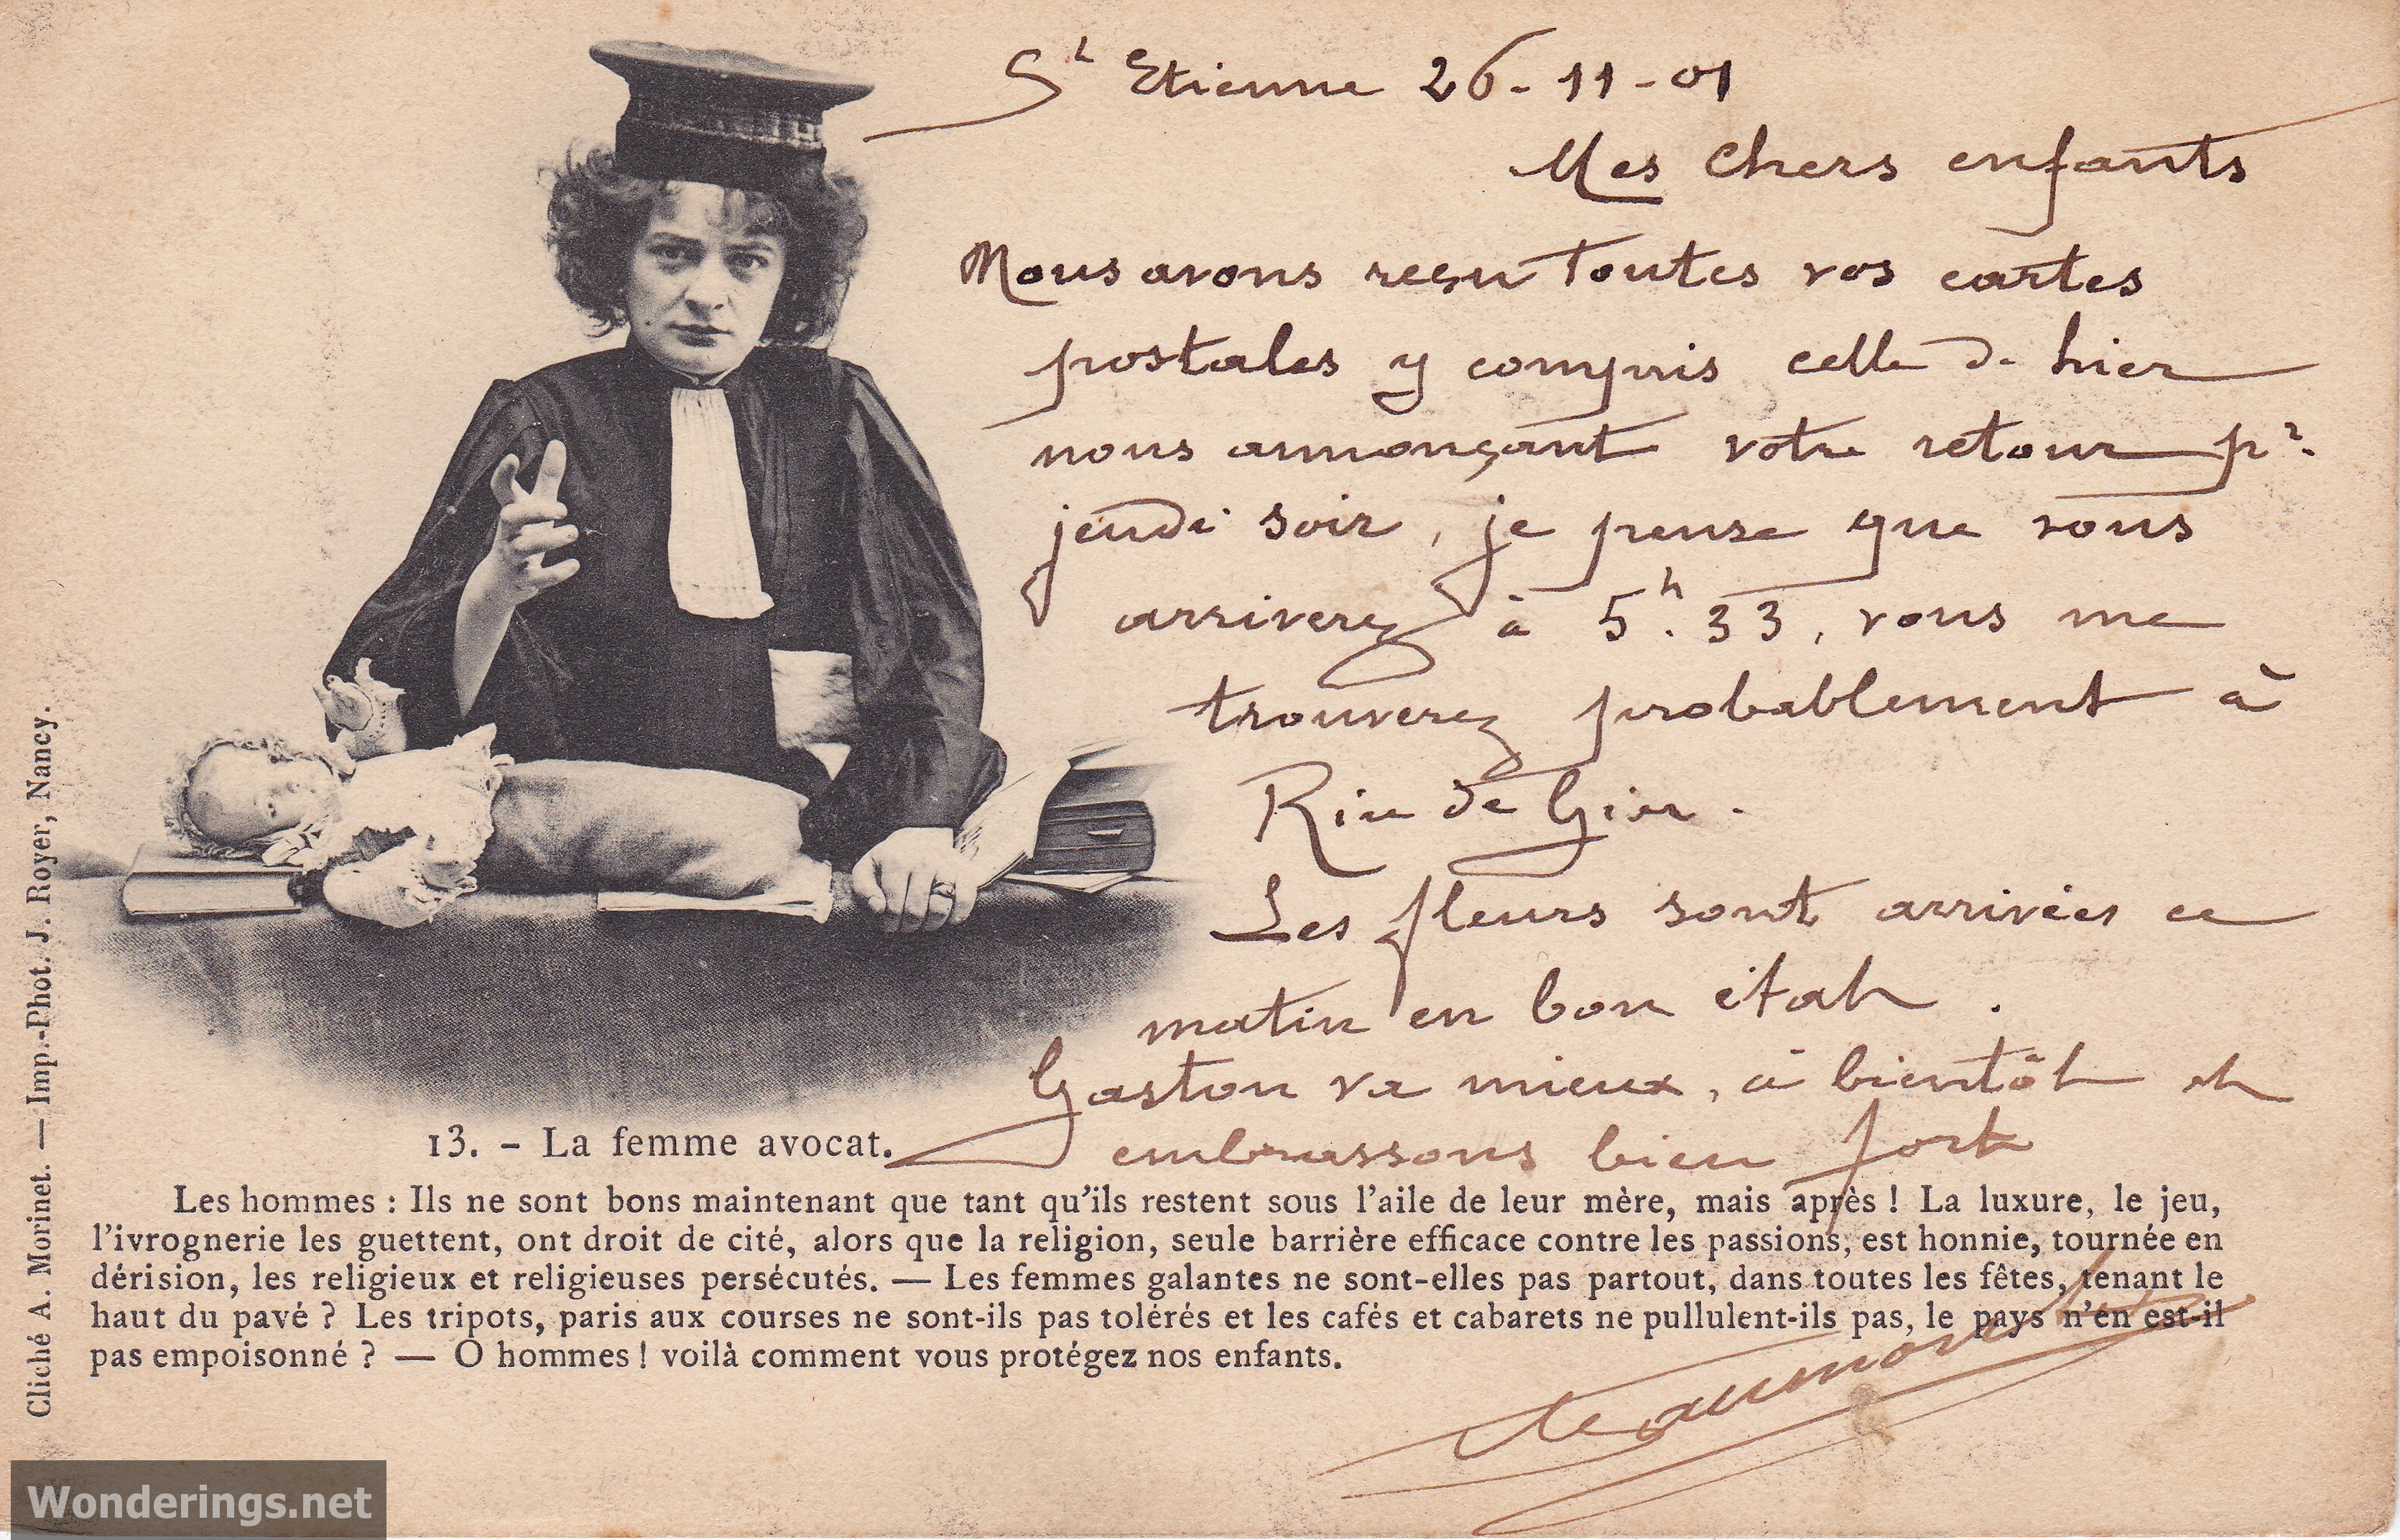 St Etienne 26-11-01
Mes chers enfants
Nous avons reçu toutes vos cartes
postales y compris celle de hier
nous annonçant votre retour pr.
jeudi soir, je pense que vous
arriverez à 5h.33, vous me
trouverez probablement à
Rive de Gier.
Les fleurs sont arrivées ce
matin en bon état.
Gaston va mieux, à bientôt et
embrassons bien fort
13. - La femme avocat.
Les hommes : Ils ne sont bons maintenant que tant qu'ils restent sous l'aile de leur mère, mais après ! La luxure, le jeu,
l'ivrognerie les guettent, ont droit de cité, alors que la religion, seule barrière efficace contre les passions, est honnie, tournée en
dérision, les religieux et religieuses persécutés. — Les femmes galantes ne sont-elles pas partout, dans toutes les fêtes, tenant le
haut du pavé ? Les tripots, paris aux courses ne sont-ils pas tolérés et les cafés et cabarets ne pullulent-ils pas, le pays n'en est-il
pas empoisonné ? — O hommes ! voilà comment vous protégez nos enfants.
Cliché A. Morinet. — Imp.-Phot. J. Royer, Nancy.
Wonderings.net